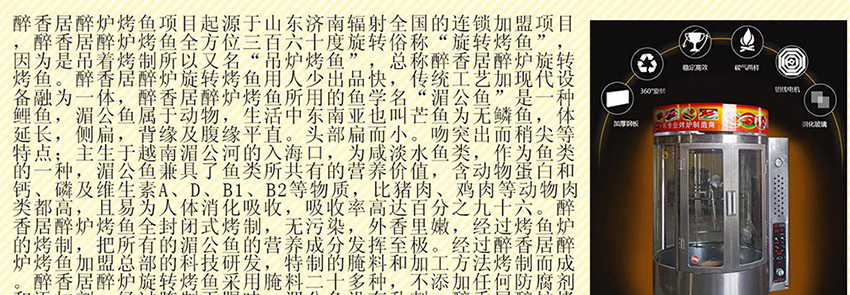 醉香居醉炉烤鱼项目起源于山东济南辐射全国的连锁加盟项目
，醉香居醉炉烤鱼全方位三百六十度旋转俗称“旋转烤鱼”，
因为是吊着烤制所以又名“吊炉烤鱼”，总称醉香居醉炉旋转
烤鱼。醉香居醉炉旋转烤鱼用人少出品快，传统工艺加现代设
备融为一体，醉香居醉炉烤鱼所用的鱼学名“湄公鱼”是一种
鲤鱼，湄公鱼属于动物，生活中东南亚也叫芒鱼为无鳞鱼，体
延长，侧扁，背缘及腹缘平直。头部扁而小。吻突出而稍尖等
特点；主生于越南湄公河的入海口，为咸淡水鱼类，作为鱼类
的一种，湄公鱼兼具了鱼类所共有的营养价值，含动物蛋白和
钙、磷及维生素A、D、B1、B2等物质，比猪肉、鸡肉等动物肉
类都高，且易为人体消化吸收，吸收率高达百分之九十六。醉
香居醉炉烤鱼全封闭式烤制，无污染，外香里嫩，经过烤鱼炉
的烤制，把所有的湄公鱼的营养成分发挥至极。经过醉香居醉
炉烤鱼加盟总部的科技研发，特制的腌料和加工方法烤制而成
。醉香居醉炉旋转烤鱼采用腌料二十多种，不添加任何防腐剂
加厚钢板
360°旋转
稳定高效
碳气两样
铝线电机
钢化玻璃
十年专业烤炉制造商